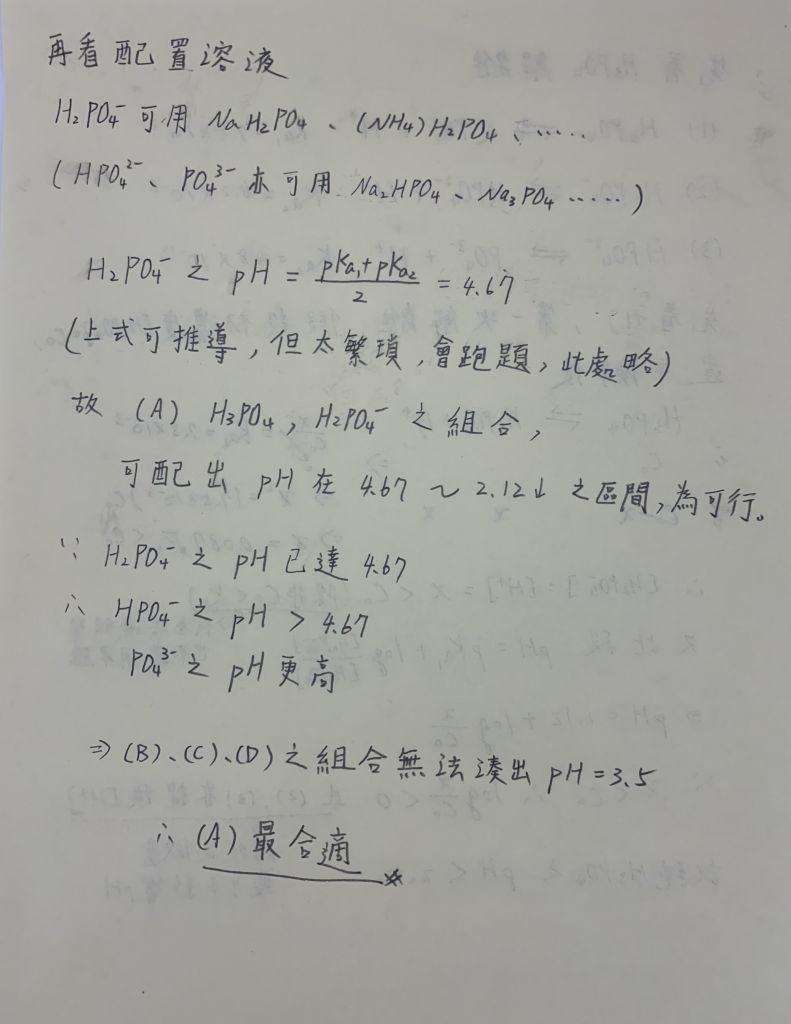 再看配置溶液
H₂PO₄⁻ 可用 NaH₂PO₄、(NH₄)H₂PO₄、……
(HPO₄²⁻、PO₄³⁻ 亦可用 Na₂HPO₄、Na₃PO₄ ……)
H₂PO₄⁻ 之 pH = (pKa₁+pKa₂)/2 = 4.67
(上式可推導，但太繁瑣，會跑題，此處略)
故 (A) H₃PO₄, H₂PO₄⁻ 之組合，
可配出 pH 在 4.67 ~ 2.12↓ 之區間，為可行。
∵ H₂PO₄⁻ 之 pH 已達 4.67
∴ HPO₄⁻ 之 pH > 4.67
PO₄³⁻ 之 pH 更高
⇒ (B)、(C)、(D) 之組合無法湊出 pH = 3.5
∴ (A) 最合適